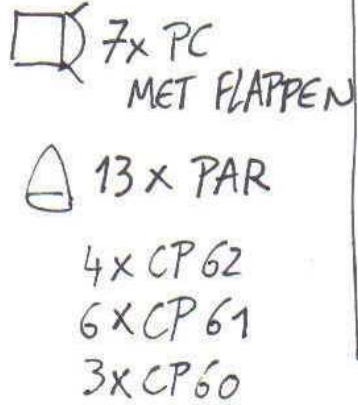 7x PC
MET FLAPPEN
13 x PAR
4 x CP 62
6 x CP 61
3x CP60